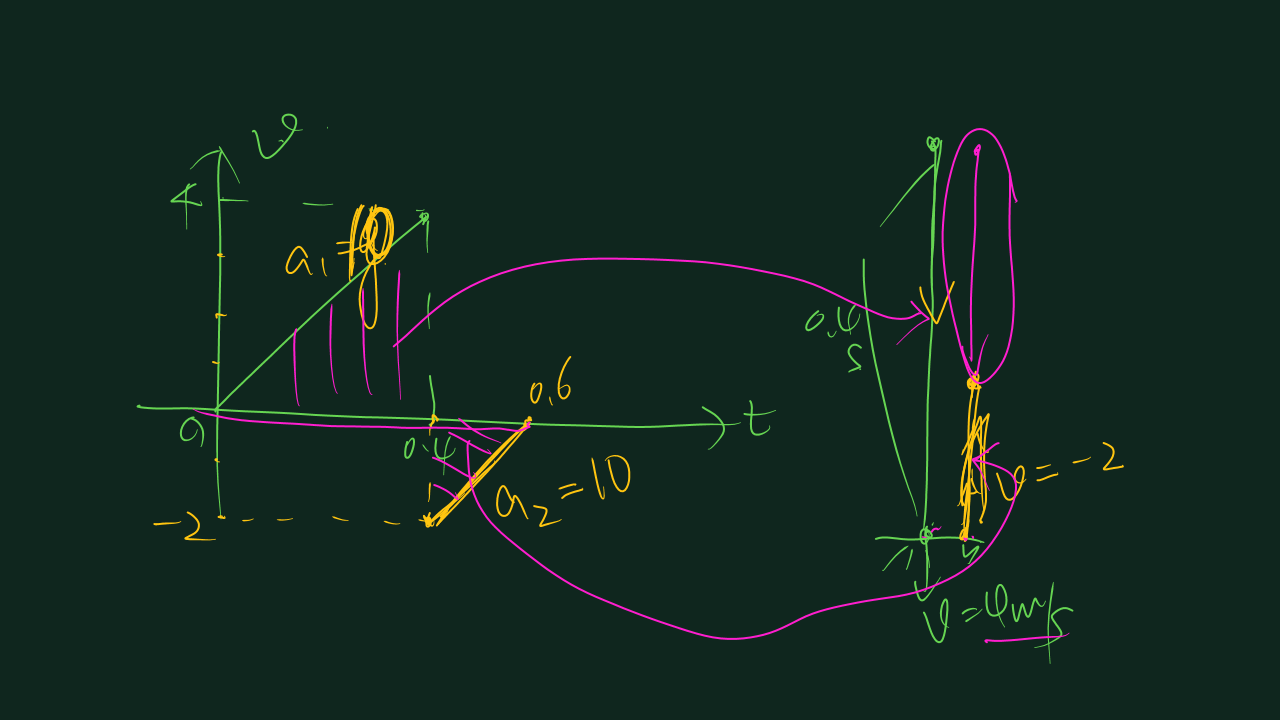 v
4
a₁=
0
0.4
0.6
t
-2
a₂=10
0.4
s
v=-2
v=4m/s